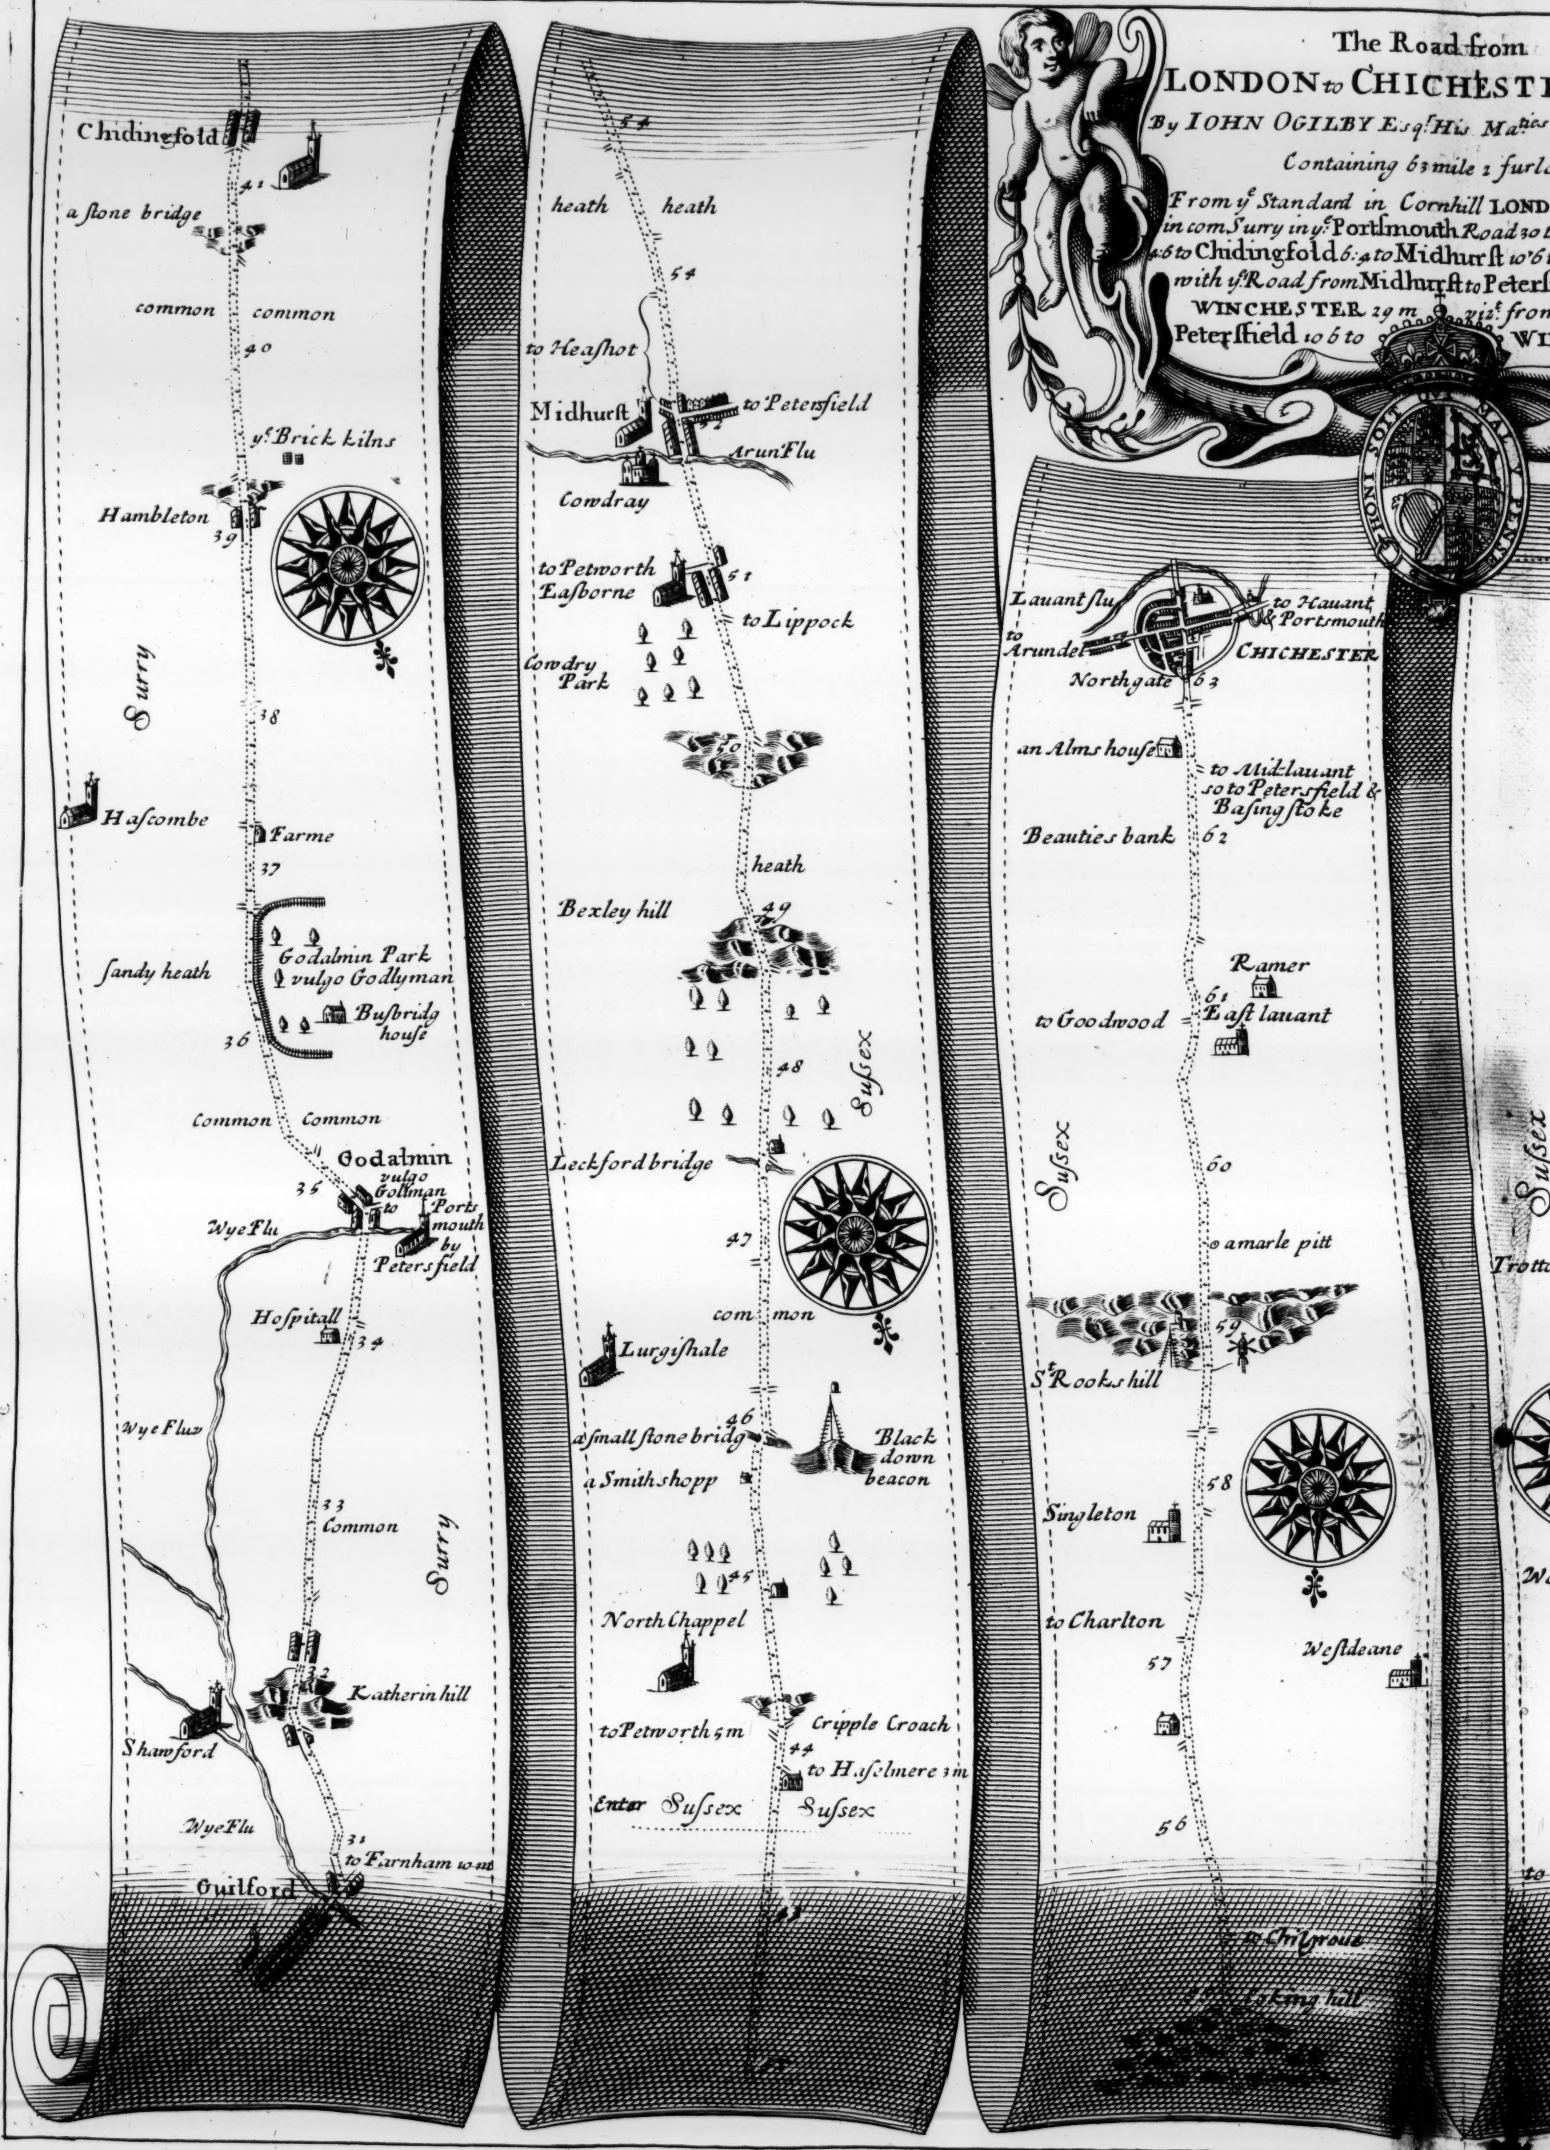 The Road from
LONDON to CHICHESTE
By IOHN OGILBY Esqr. His Maties
Containing 63 mile 2 furlo
From ye Standard in Cornhill LOND
in com Surry in ye Portsmouth Road 30
4:6 to Chidingfold 6:4 to Midhurst 10'6
with ye Road from Midhurst to Peters
WINCHESTER 29 m vizt. from
Petersfield 10 6 to WI
HONI SOIT QVI MAL Y PENSE
Chidingfold
41
a stone bridge
common common
40
ye. Brick kilns
Hambleton
39
Surry
38
Hascombe
Farme
37
Godalmin Park
vulgo Godlyman
sandy heath
Busbridg
house
36
Common Common
Godalmin
vulgo
Gollman
35
to Ports
mouth
by
Petersfield
Wye Flu
Hospitall
34
Wye Fluv
33
Common
Surry
32
Katherin hill
Shawford
Wye Flu
31
to Farnham 10 m
Guilford
54
heath heath
54
to Heashot
Midhurst
to Petersfield
52
Arun Flu
Cowdray
to Petworth
Easborne
51
to Lippock
Cowdry
Park
50
heath
Bexley hill
49
48
Sussex
Leckford bridge
47
com mon
Lurgishale
46
a small stone bridg
Black
down
beacon
a Smith shopp
45
North Chappel
Cripple Croach
to Petworth 5 m
44
to Haselmere 3 m
Enter Sussex Sussex
43
Lauant flu
to Hauant
& Portsmouth
to
Arundel
CHICHESTER
Northgate 63
an Alms house
to Mid:lauant
so to Petersfield &
Basingstoke
Beauties bank
62
Ramer
61
East lauant
to Goodwood
Sussex
60
a marle pitt
59
St. Rooks hill
58
Singleton
to Charlton
57
Westdeane
56
to Chilgroue
55
hill
Sussex
Trott
to